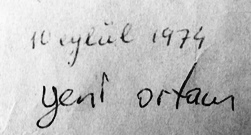 10 eylül 1974
yeni ortam